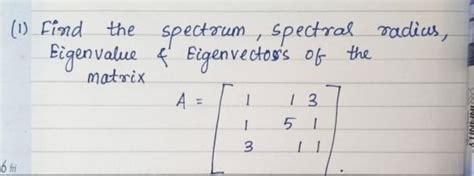 (1) Find the spectrum, spectral radius,
Eigenvalue & Eigenvectors of the
matrix
A = [ 1 1 3
1 5 1
3 1 1 ].